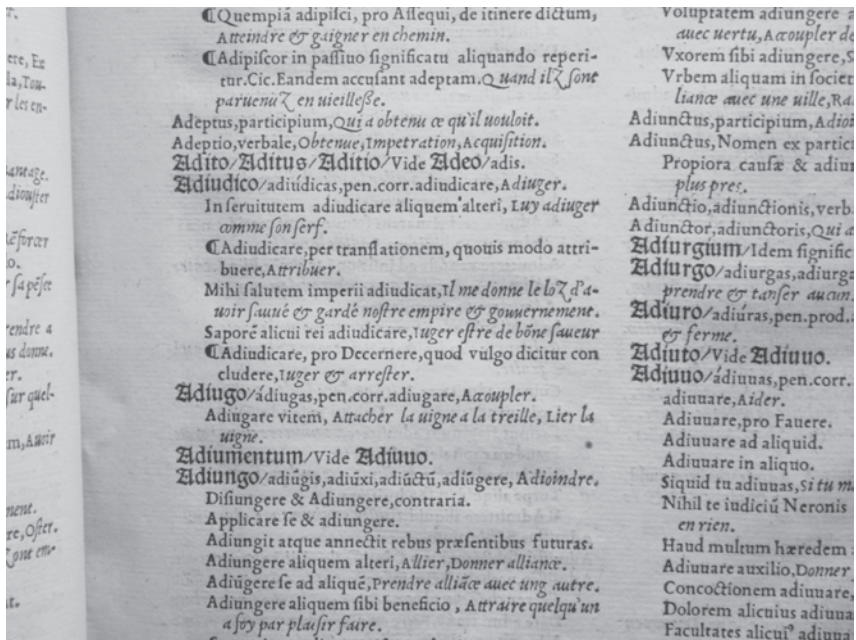 ere, Ex
la, Tou-
r les en-
antage.
diouster
rẽforcer
o.
r sa pẽsee
rendre a
us donne.
er.
sur quel-
m, Auoir
ment.
re, Oster.
ont em-
t.
¶Quempiã adipisci, pro Assequi, de itinere dictum,
Atteindre & gaigner en chemin.
¶Adipiscor in passiuo significatu aliquando reperi-
tur. Cic. Eandem accusant adeptam. Quand ilz sont
paruenuz en uieillesse.
Adeptus, participium, Qui a obtenu ce qu'il uouloit.
Adeptio, verbale, Obtenue, Impetration, Acquisition.
Adito/Aditus/Aditio/Vide Adeo/adis.
Adiudico/adiúdicas, pen. corr. adiudicare, Adiuger.
In seruitutem adiudicare aliquem alteri, Luy adiuger
comme son serf.
¶Adiudicare, per translationem, quouis modo attri-
buere, Attribuer.
Mihi salutem imperii adiudicat, Il me donne le loz d'a-
uoir sauué & gardé nostre empire & gouuernement.
Saporẽ alicui rei adiudicare, Iuger estre de bõne saueur
¶Adiudicare, pro Decernere, quod vulgo dicitur con
cludere, Iuger & arrester.
Adiugo/ádiugas, pen. corr. adiugare, Accoupler.
Adiugare vitem, Attacher la uigne a la treille, Lier la
uigne.
Adiumentum/Vide Adiuuo.
Adiungo/adiũgis, adiũxi, adiũctũ, adiũgere, Adioindre.
Disiungere & Adiungere, contraria.
Applicare se & adiungere.
Adiungit atque annectit rebus præsentibus futuras.
Adiungere aliquem alteri, Allier, Donner alliance.
Adiũgere se ad aliquẽ, Prendre alliãce auec ung autre.
Adiungere aliquem sibi beneficio, Attraire quelqu'un
a soy par plaisir faire.
Voluptatem adiungere a
auec uertu, Accoupler de
Vxorem sibi adiungere, S
Vrbem aliquam in societ
liance auec une uille, Ra
Adiunctus, participium, Adioi
Adiunctus, Nomen ex partici
Propiora causæ & adiun
plus pres.
Adiunctio, adiunctionis, verb
Adiunctor, adiunctoris, Qui a
Adiurgium/Idem signific
Adiurgo/adiurgas, adiurga
prendre & tanser aucun.
Adiuro/adiúras, pen. prod. a
& ferme.
Adiuto/Vide Adiuuo.
Adiuuo/ádiuuas, pen. corr.
adiuuare, Aider.
Adiuuare, pro Fauere.
Adiuuare ad aliquid.
Adiuuare in aliquo.
Siquid tu adiuuas, Si tu m
Nihil te iudiciũ Neronis
en rien.
Haud multum hæredem
Adiuuare auxilio, Donner
Concoctionem adiuuare,
Dolorem alicuius adiuua
Facultates alicui⁹ adiuua